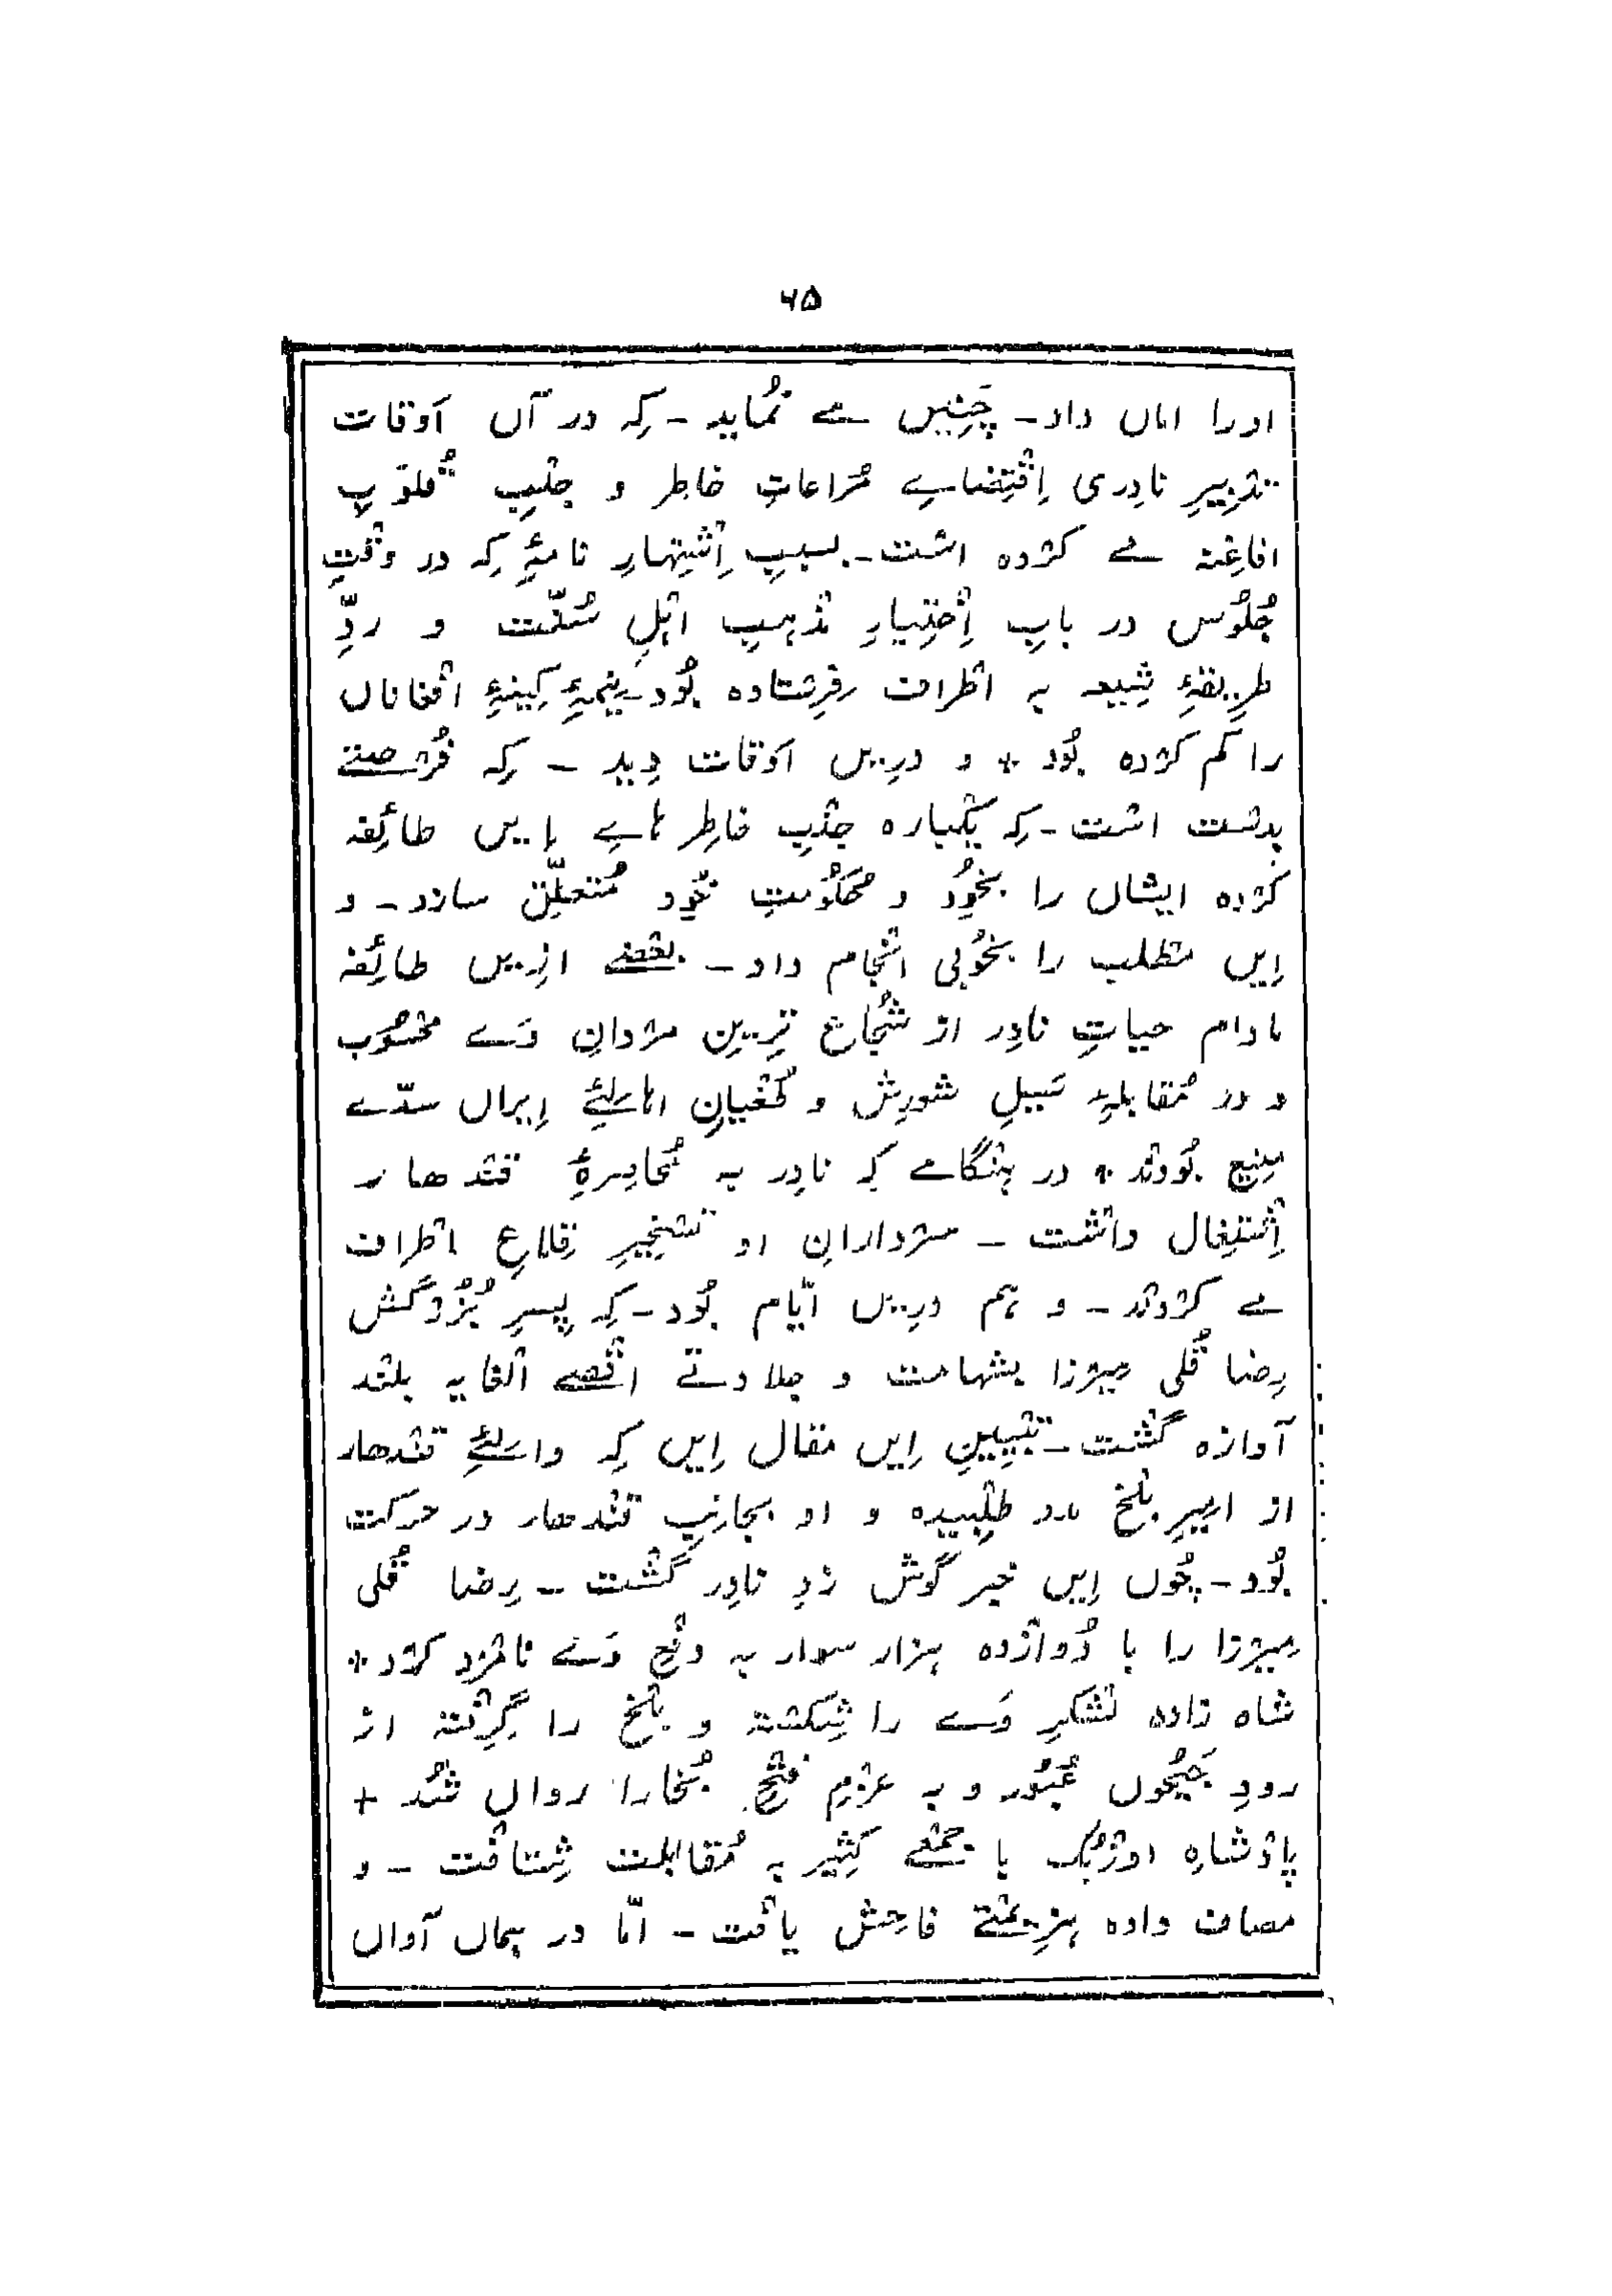 ۶۵
اورا اماں داد - چَنِیں مے نُماید - کِہ در آں اَوقات
تدبِیرِ نادِری اِقْتِضاےِ مُراعاتِ خاطِر و جلْبِ قُلوبِ
افاغِنہ مے کرْدہ اسْت - بسببِ اِشْتِہارِ نامۂِ کِہ در وقْتِ
جُلُوس در بابِ اِخْتِیارِ مذْہبِ اہْلِ سُنّت و ردِّ
طرِیقۂِ شِیعہ بہ اطْراف فِرِستادہ بُود - نِیمۂِ کِینۂِ افْغاناں
را کم کرْدہ بُود * و درِیں اَوقات دِید - کِہ فُرْصتے
بدسْت اسْت - کِہ یکْبارہ جذْبِ خاطِر ہاےِ ایں طائِفہ
کرْدہ ایشاں را بخُود و حُکُومتِ خُود مُتعلِّق سازد - و
اِیں مطْلب را بخُوبی انْجام داد - بعْضے ازِیں طائِفہ
مادام حیاتِ نادِر از شُجاع ترِین مرْدانِ وَے محْسُوب
و در مُقابلہِ سَیلِ شورِش و طُغْیانِ اہالِئِ اِیراں سدّے
منِیع بُودنْد * در ہنْگامے کہ نادِر بہ مُحاصِرۂِ قنْدھار
اِشْتِغال داشْت - سرْدارانِ او تسْخِیرِ قِلاعِ اطْراف
مے کرْدنْد - و ہم درِیں ایّام بُود - کِہ پِسرِ بُزُرگش
رِضا قُلی مِیرْزا بشہامت و جلادتے اقْصے الْغایہ بلنْد
آوازہ گشْت - تبْیِینِ اِیں مقال اِیں کِہ والِئِ قنْدھار
از امِیرِ بلْخ مدد طلبِیدہ و او بجانِبِ قنْدھار در حرکت
بُود - چُوں اِیں خبر گوش زدِ نادِر گشْت - رِضا قُلی
مِیرْزا را با دُوازْدہ ہزار سوار بہ دفْعِ وَے نامْزد کرْد *
شاہ زادہ لشْکرِ وَے را شِکسْتہ و بلْخ را گِرِفْتہ از
رودِ جَیحُوں عُبُور و بہ عزْمِ فتْحِ بُخارا رواں شُد +
پادْشاہِ اوزْبک با جمْعے کثِیر بہ مُقابلت شِتافْت - و
مصاف دادہ ہزِیمتے فاحِش یافْت - امّا در ہماں آواں